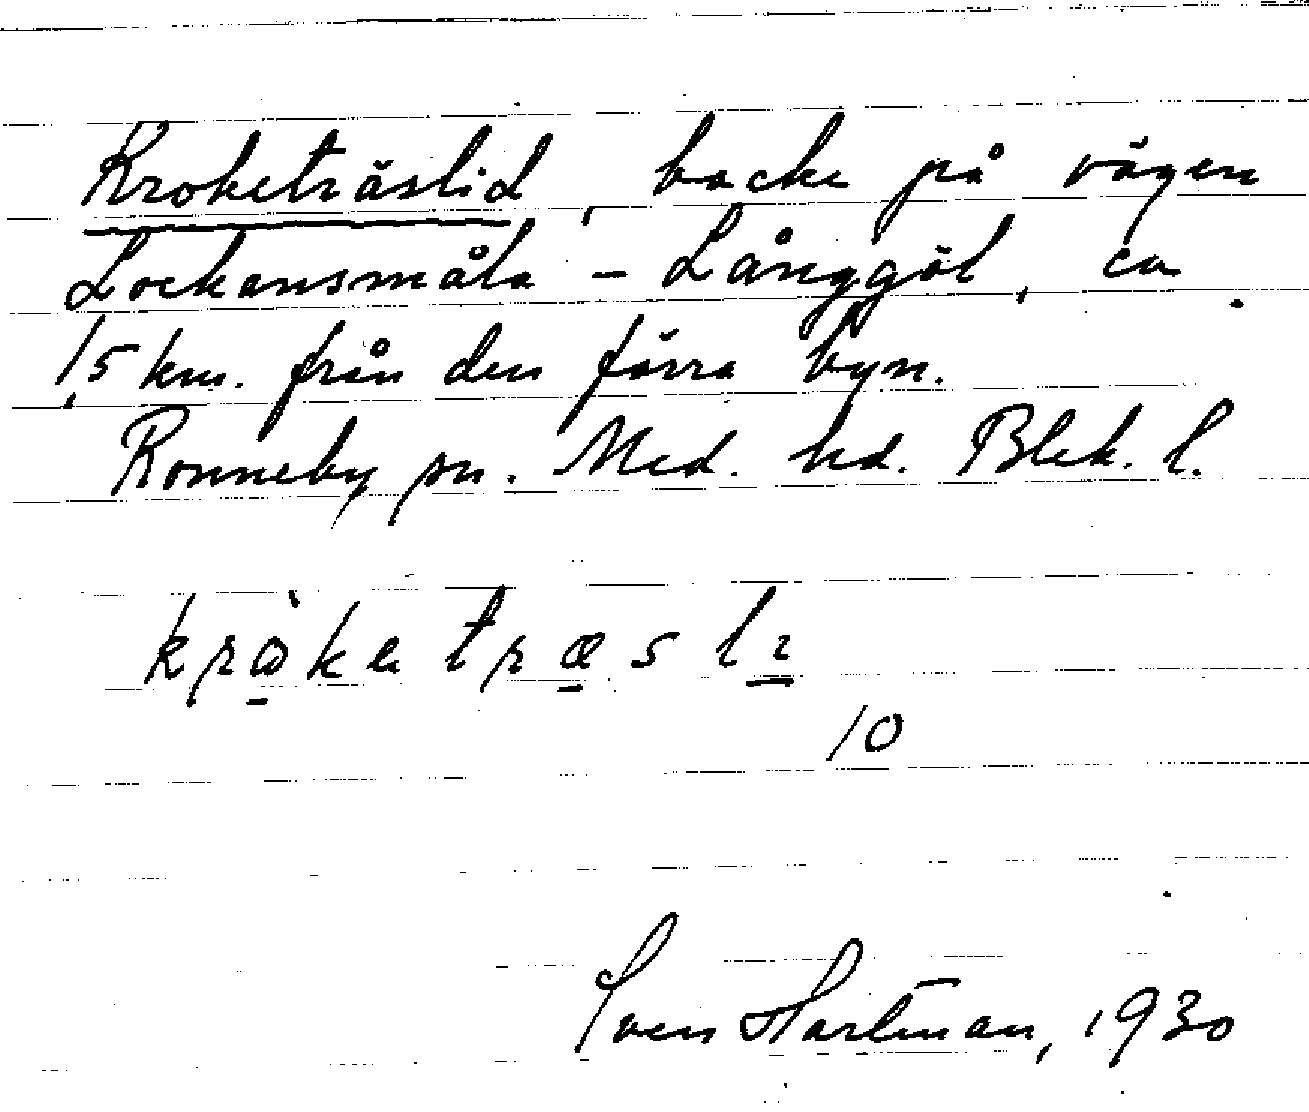 Kroketräslid, backe på vägen
Lockansmåla - Långgöl, ca
1,5 km. från den förra byn.
Ronneby sn. Med. hd. Blek. l.
krὰketræslı
10
Sven Hartman, 1930